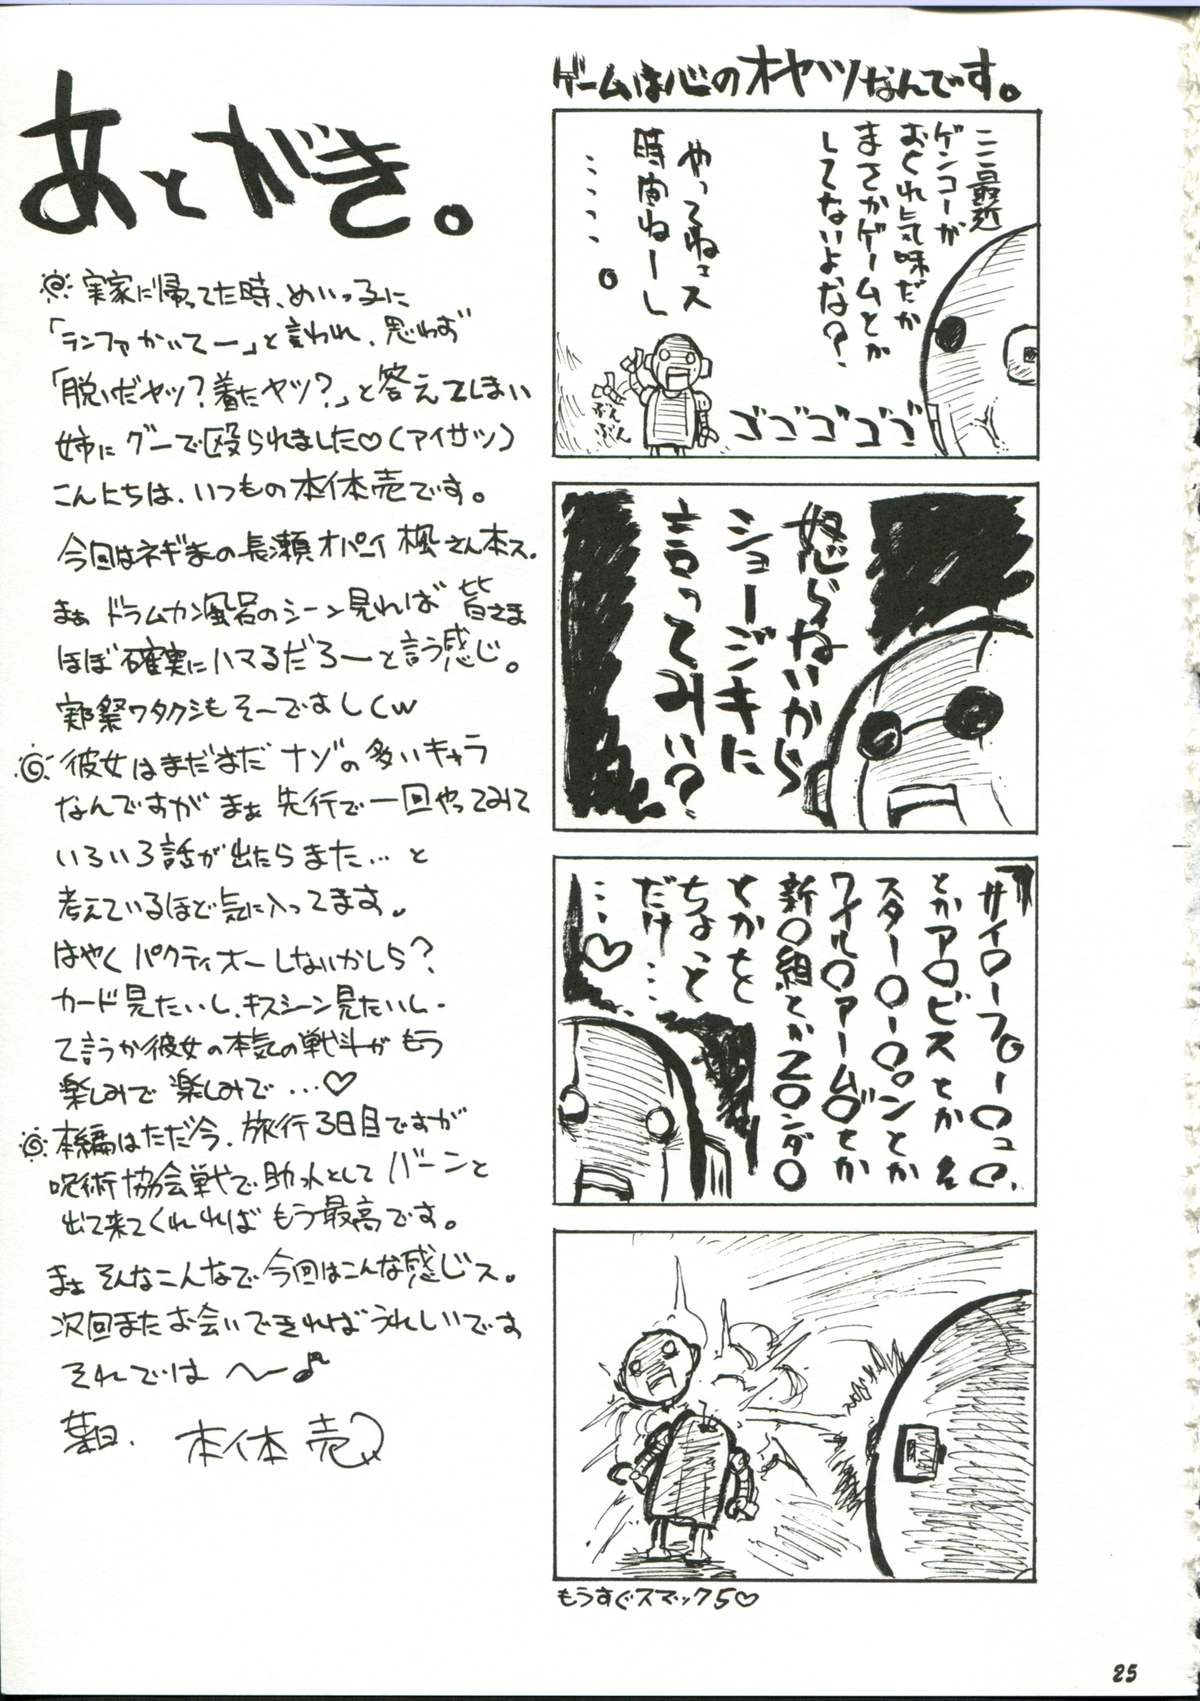 あとがき。
実家に帰ってた時、めいっ子に
「ランファかいてー」と言われ、思わず
「脱いだヤツ?着たヤツ?」と答えてしまい
姉にグーで殴られました♡(アイサツ)
こんにちは、いつもの本体売です。
今回はネギまの長瀬オパーイ楓さん本ス。
まぁドラムカン風呂のシーン見れば皆さま
ほぼ確実にハマるだろーと言う感じ。
実際ワタクシもそーですしくw
彼女はまだまだナゾの多いキャラ
なんですがまぁ先行で一回やってみて
いろいろ話が出たらまた…と
考えているほど気に入ってます。
はやくパクティオーしないかしら?
カード見たいし、キスシーン見たいし、
て言うか彼女の本気の戦斗がもう
楽しみで楽しみで…♡
本編はただ今、旅行3日目ですが
呪術協会戦で助っ人としてバーンと
出て来てくれればもう最高です。
まぁそんなこんなで今回はこんな感じス。
次回またお会いできればうれしいです
それでは〜♪
本体売
ゲームは心のオヤツなんです。
ここ最近
ゲンコーが
おくれ気味だか
まさかゲームとか
してないよな?
やってねェス
時間ねーし
……。
ぶんぶん
ゴゴゴゴゴ
怒らないから
ショージキに
言ってみい?
サイ○ーフ○ー○ュ○、
とかア○ビスとか
スター○ー○ンとか
ワイル○アーム○とか
新○組とかZ○ンダ○
とかを
ちょっと
だけ…
…♡
もうすぐスマック5♡
25